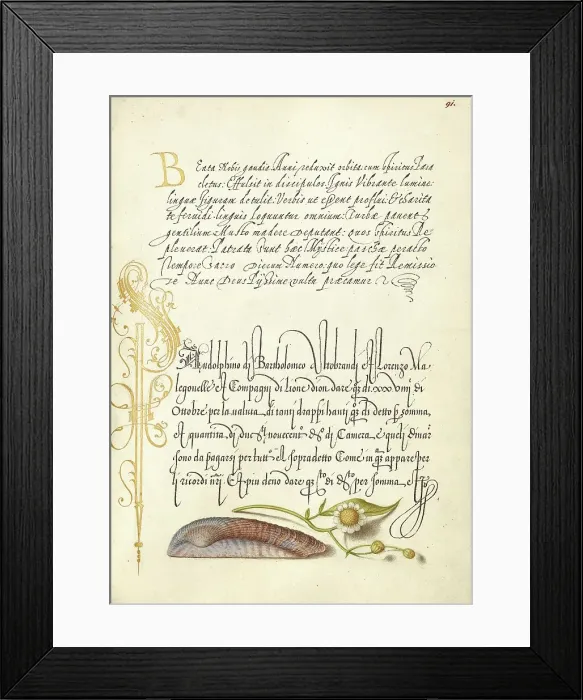 91.
Beata Nobis gaudia Anni reduxit orbita: cum spiritus Para
cletus: Effulsit in discipulos. Ignis Vibrante lumine:
linguæ figuram detulit. Verbis ut essent proflui: Et Charita
te feruidi. linguis loquuntur omnium: Turbæ pauent
gentilium Musto madere deputant: quos spiritus Re
pleuerat. Patrata sunt hæc: Mystice paschæ peracto
tempore Sacro dierum Numero: quo lege fit Remissio
te Nunc Deus Pijssime vultu præcamur
Landolphino di Bartholomeo Altobrandi Et Lorenzo Ma
legonelle et Compagni di Lione dion dare di xxx Viiij di
Ottobre per la valuta di tanti drappi hauti di detto somma,
Et quantita di due nouecento di Camera, e queli dinar
sono da pagarsi per tutto Il sopradetto Come in appare per
li ricordi Et piu deno dare di per somma